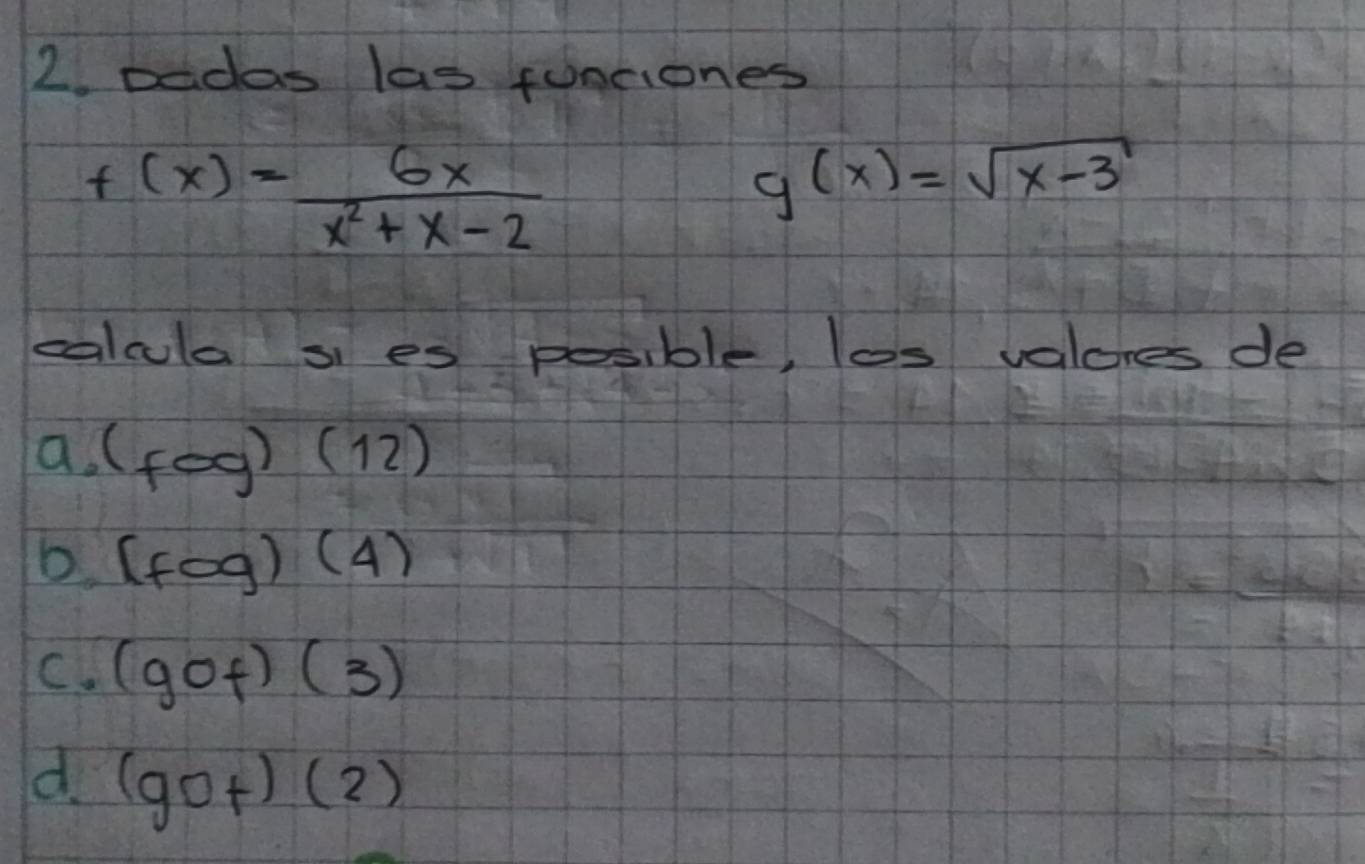 2. Dadas las funciones
f(x) = 6x / x² + x - 2    g(x) = √x-3
calcula si es posible, los valores de
a. (fog) (12)
b. (fog) (4)
c. (gof) (3)
d. (gof) (2)